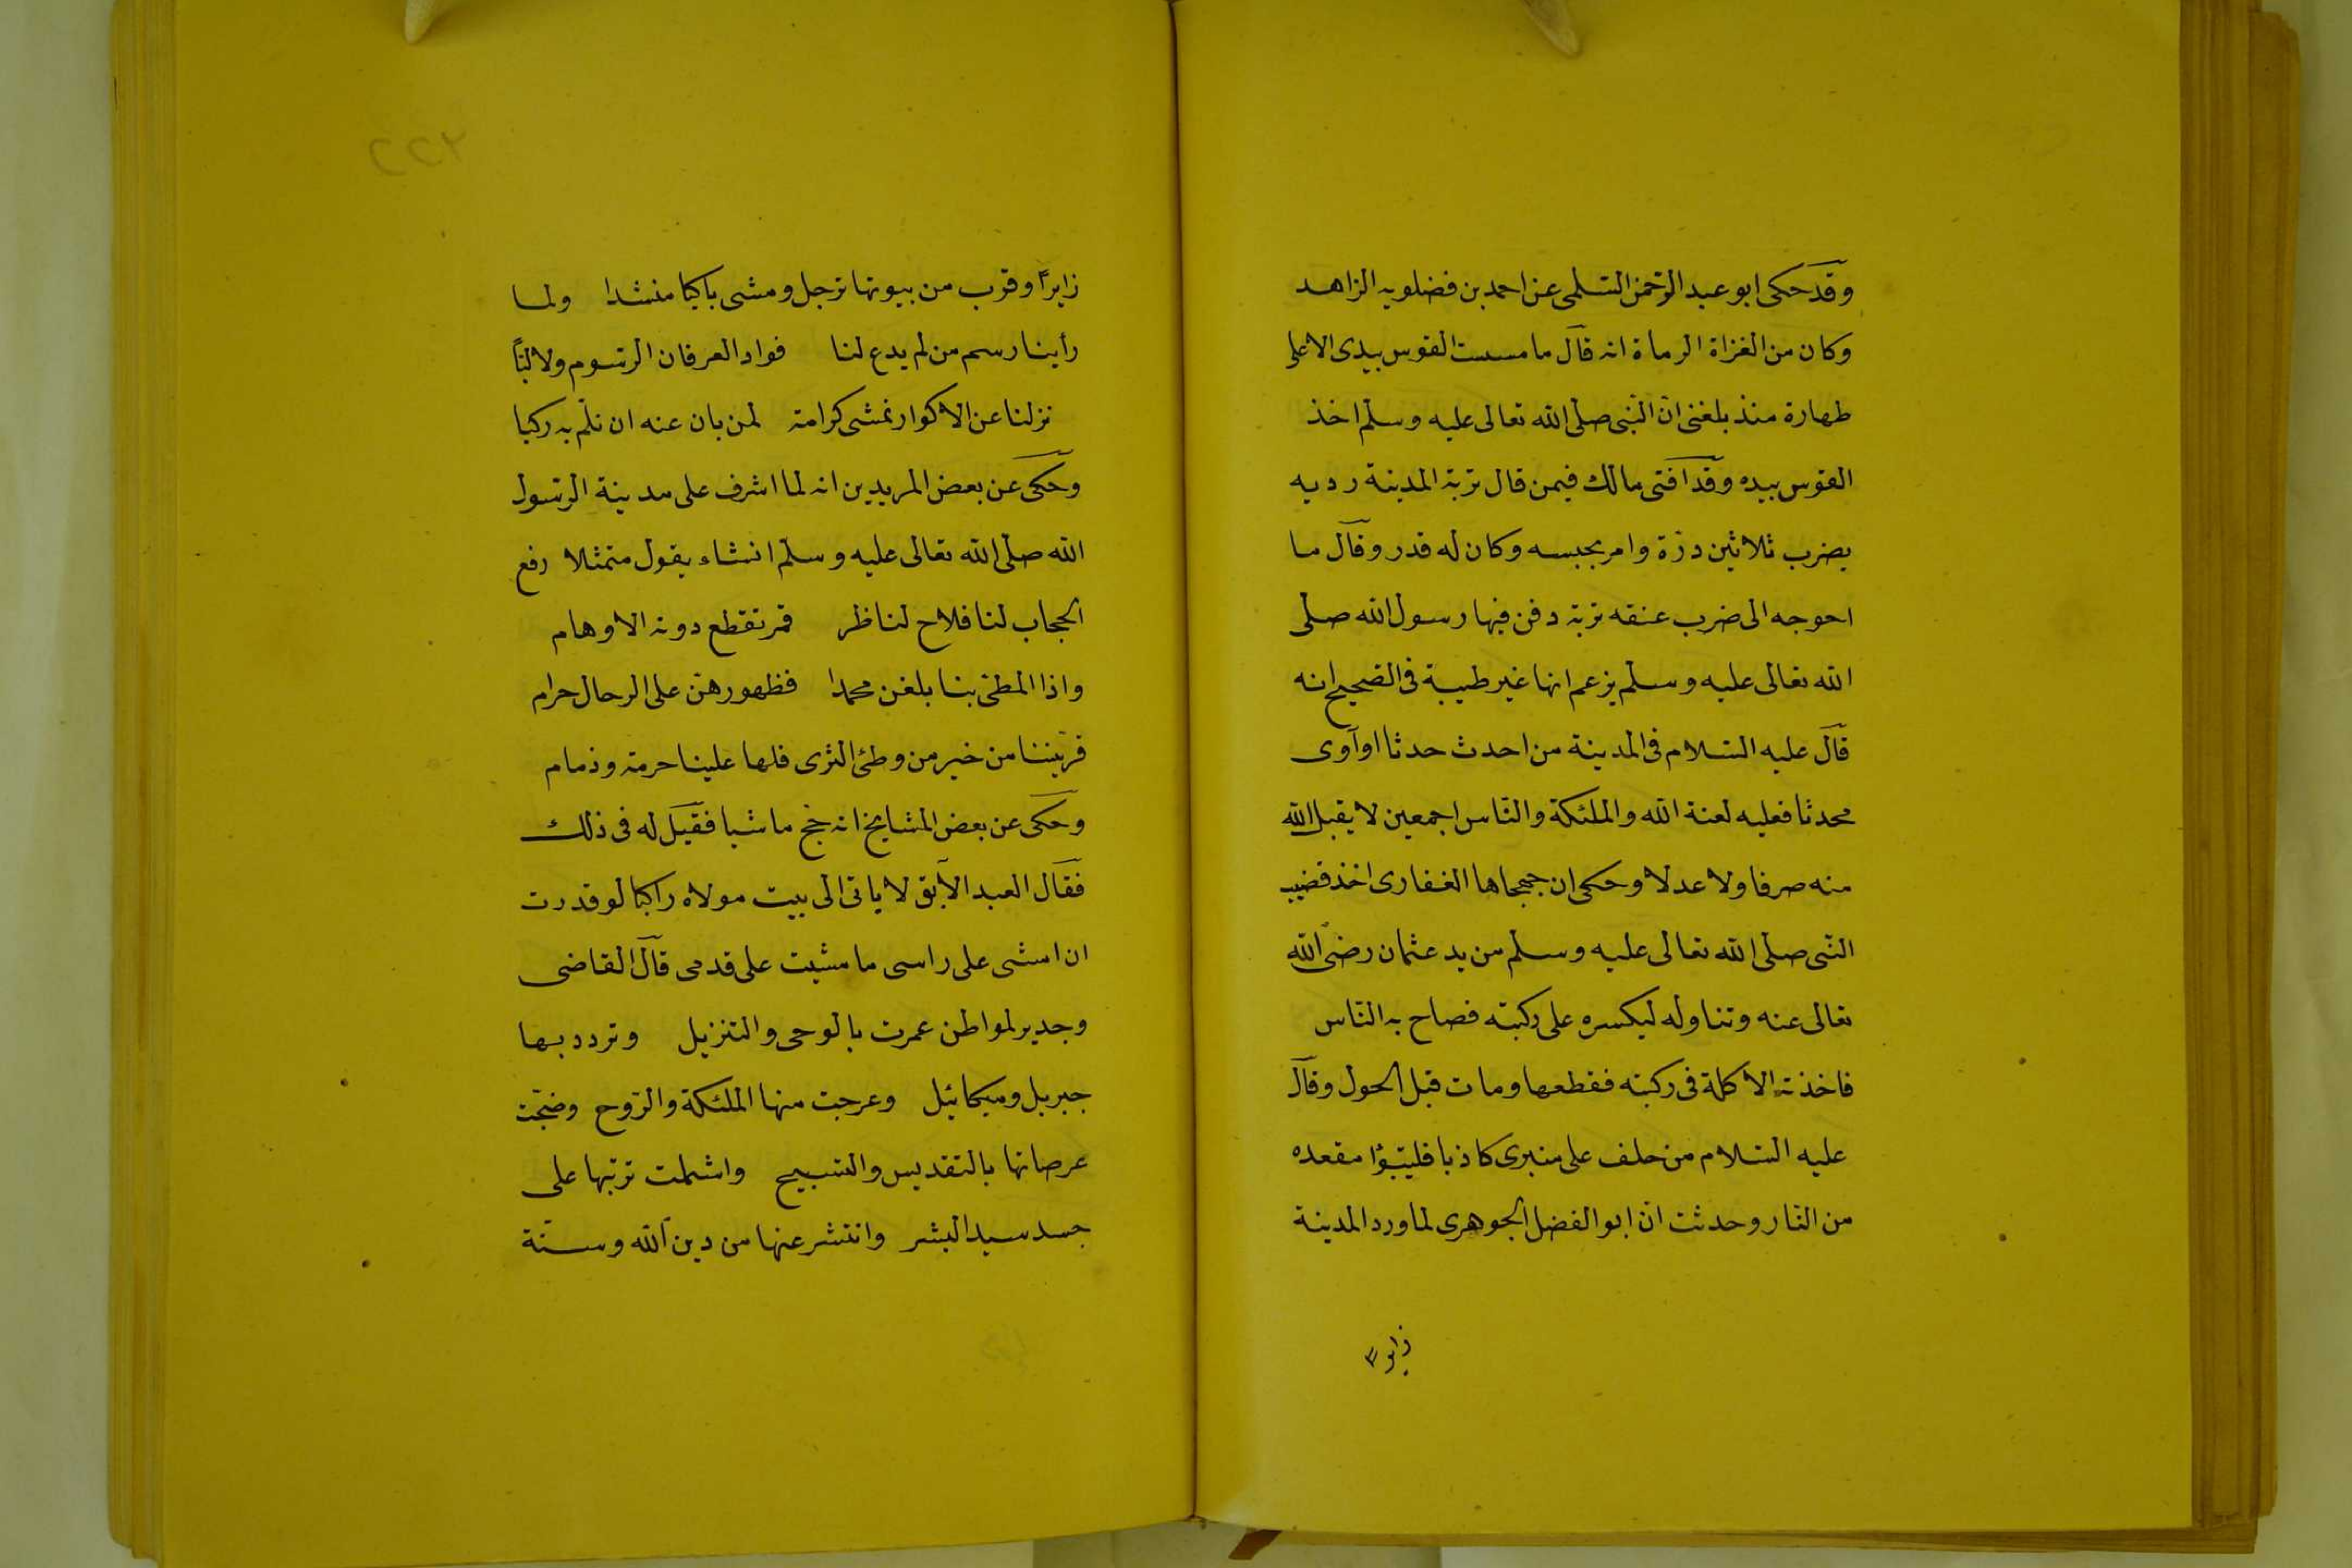 وقد حكى ابو عبد الرحمن السلمى عن احمد بن فضلويه الزاهد
وكان من الغزاة الرماة انه قال ما مسست القوس بيدى الا على
طهارة منذ بلغنى ان النبى صلى الله تعالى عليه وسلم اخذ
القوس بيده وقد افتى مالك فيمن قال تربة المدينة رديه
يضرب ثلاثين درة وامر بحبسه وكان له قدر وقال ما
احوجه الى ضرب عنقه تربة دفن فيها رسول الله صلى
الله تعالى عليه وسلم يزعم انها غير طيبة فى الصحيح انه
قال عليه السلام فى المدينة من احدث حدثا او آوى
محدثا فعليه لعنة الله والملئكة والناس اجمعين لا يقبل الله
منه صرفا ولا عدلا وحكى ان جهجاها الغفارى اخذ قضيب
النبى صلى الله تعالى عليه وسلم من يد عثمان رضى الله
تعالى عنه وتناوله ليكسره على ركبته فصاح به الناس
فاخذته الاكلة فى ركبته فقطعها ومات قبل الحول وقال
عليه السلام من حلف على منبرى كاذبا فليتبوٴا مقعده
من النار وحدثت ان ابو الفضل الجوهرى لما ورد المدينة
زايراً وقرب من بيوتها ترجل ومشى باكيا منشدا ولما
رأينا رسم من لم يدع لنا فواد العرفان الرسوم ولا لبّاً
نزلنا عن الاكوار نمشى كرامة لمن بان عنه ان نلم به ركبا
وحكى عن بعض المريدين انه لما اشرف على مدينة الرسول
الله صلى الله تعالى عليه وسلم انشاء يقول متمثلا رفع
الحجاب لنا فلاح لناظر قمر تقطع دونه الاوهام
واذا المطى بنا بلغن محمدا فظهورهن على الرحال حرام
قربننا من خير من وطئ الثرى فلها علينا حرمة وذمام
وحكى عن بعض المشايخ انه حج ماشيا فقيل له فى ذلك
فقال العبد الآبق لا ياتى الى بيت مولاه راكبا لو قدرت
ان امشى على راسى ما مشيت على قدمى قال القاضى
وجدير لمواطن عمرت بالوحى والتنزيل وتردد بها
جبريل وميكائيل وعرجت منها الملئكة والروح وضجت
عرصاتها بالتقديس والتسبيح واشملت تربتها على
جسد سيد البشر وانتشر عنها من دين الله وسنة